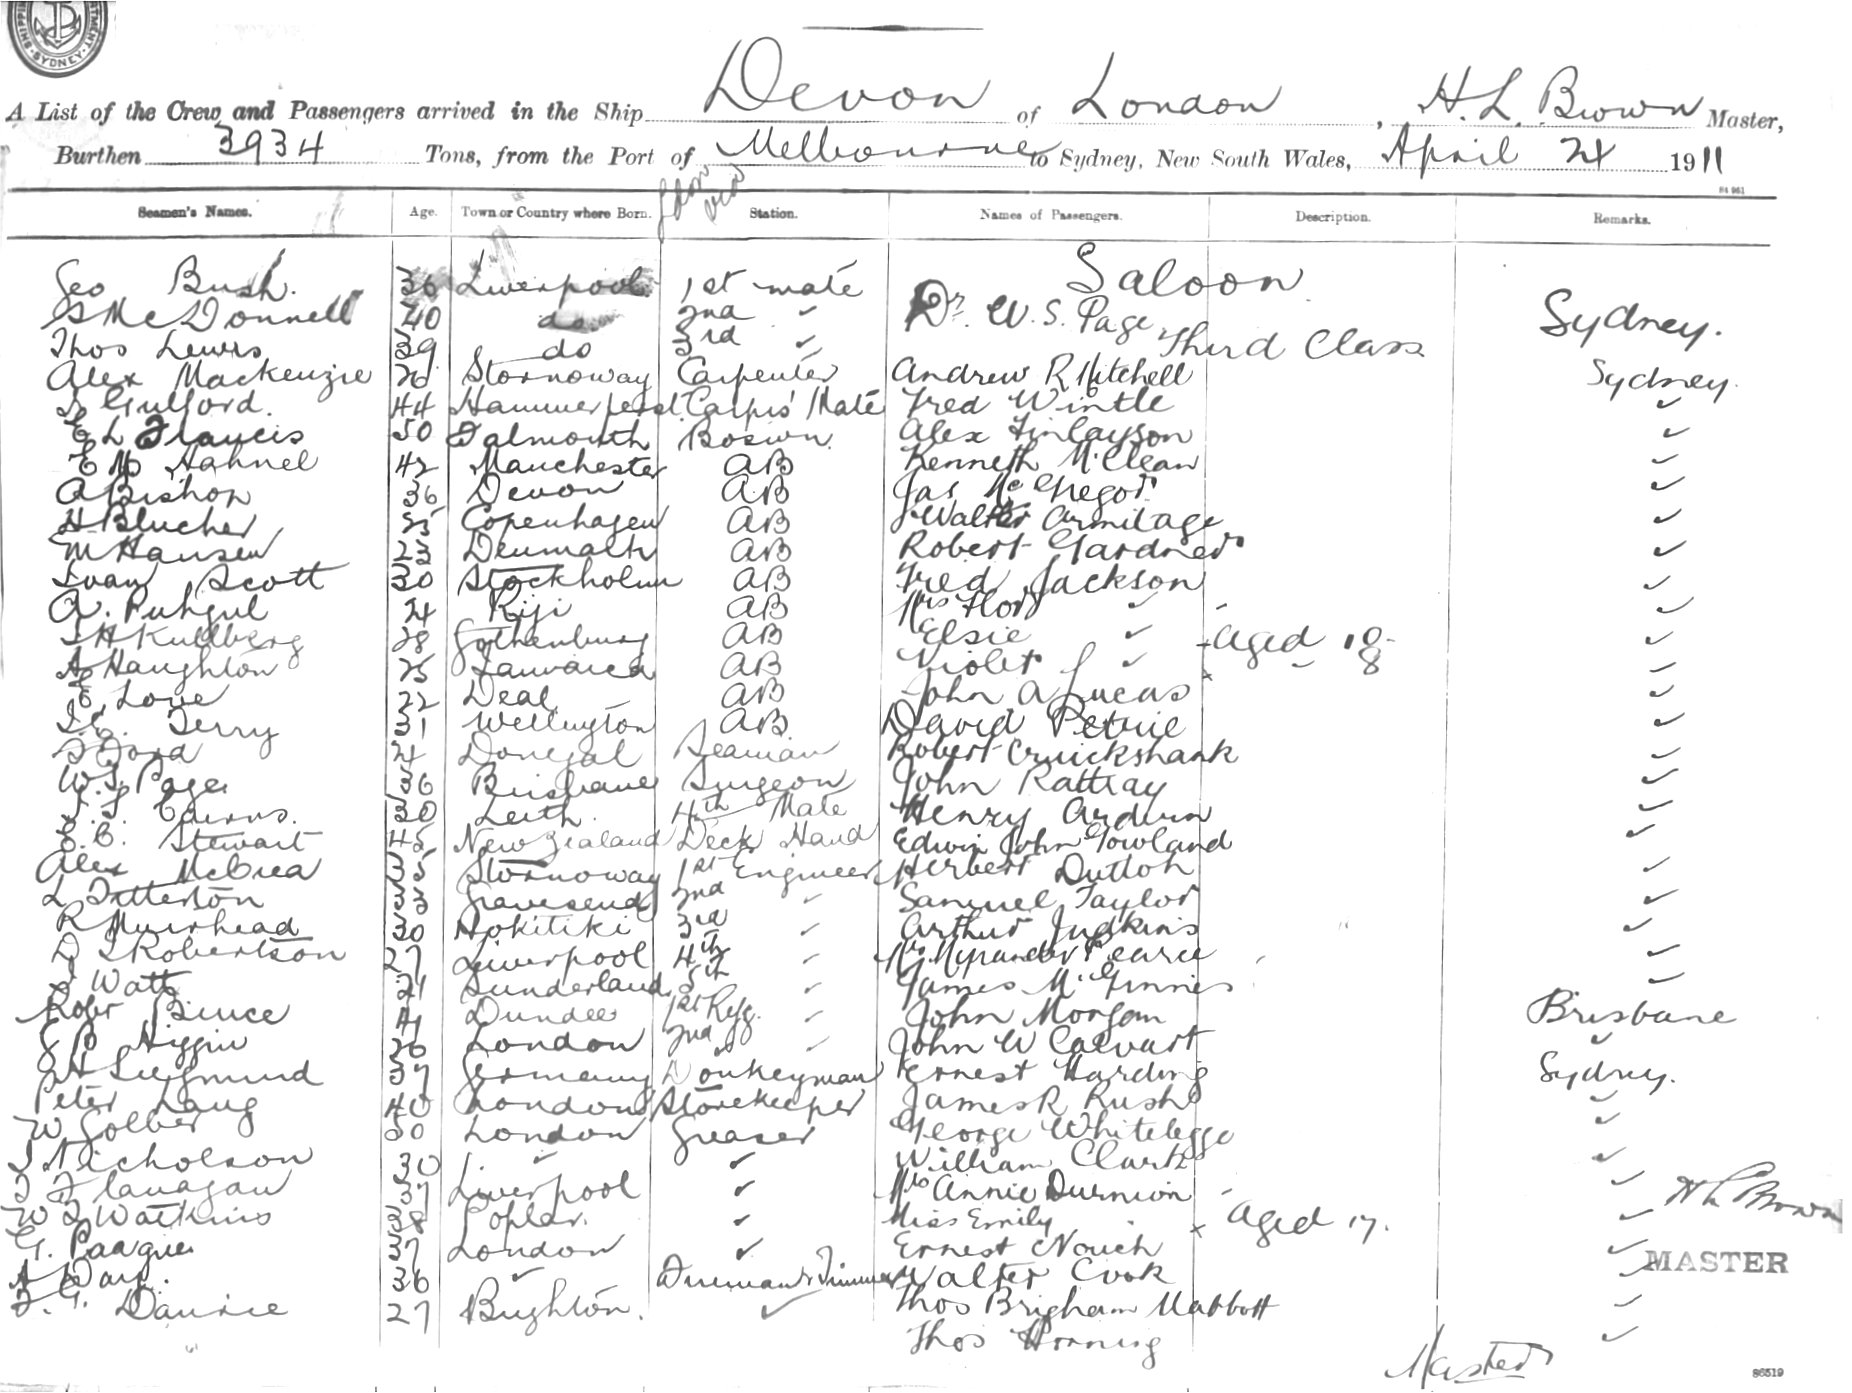 SYDNEY
A List of the Crew and Passengers arrived in the Ship Devon of London, H. L. Brown Master,
Burthen 3934 Tons, from the Port of Melbourne to Sydney, New South Wales, April 24 1911
84 961
Seamen's Names. Age. Town or Country where Born. Station. Names of Passengers. Description. Remarks.
Saloon
Geo Bush. 36 Liverpool 1st mate
McDonnell 40 do 2nd ✓ Dr. W. S. Page Sydney.
Thos Lewis 39 do 3rd ✓ Third Class
Alex Mackenzie 26 Stornoway Carpenter Andrew R Mitchell Sydney.
Gulford. 44 Hammerfest Carps' Mate Fred Wintle ✓
E L Francis 50 Falmouth Boswn. Alex Finlayson ✓
E M Hahnel 42 Manchester AB Kenneth McClean ✓
A Bishop 36 Devon AB Jas McGregor ✓
H Blucher 25 Copenhagen AB Walter Armitage ✓
M Hansen 23 Denmark AB Robert Gardner ✓
Ivan Scott 30 Stockholm AB Fred Jackson ✓
A. 24 Fiji AB Mrs Flor ✓ ✓
Kullberg 28 Gothenburg AB Elsie ✓ Aged 10 ✓
A Haughton 25 Jamaica AB Violet ✓ 8 ✓
E. Love 22 Deal AB John A Lucas ✓
Terry 31 Wellington AB David Petrie ✓
Ford 24 Donegal Seaman Robert Cruickshank ✓
W. S. Page 36 Brisbane Surgeon John Rattray ✓
Cairns. 30 Leith 4th Mate Henry Ardern ✓
E. C. Stewart 45 New Zealand Deck Hand Edwin John Gowland ✓
Alex McCrea 35 Stornoway 1st Engineer Herbert Dutton ✓
L Titterton 33 Gravesend 2nd ✓ Samuel Taylor ✓
R Muirhead 30 Hokitiki 3rd ✓ Arthur Judkins ✓
D Robertson 27 Liverpool 4th ✓ Pearce ✓
Watt 24 Sunderland 5th ✓ James McGinnies ✓
Robt Bruce 41 Dundee 1st Refg. ✓ John Morgan Brisbane
Higgin 26 London 2nd ✓ John W Calvert ✓
Siegmund 37 Germany Donkeyman Ernest Harding Sydney.
Peter Lang 40 London Storekeeper James R Rush ✓
W Golber 50 London Greaser George Whitelegge ✓
Nicholson 30 ✓ ✓ William Clark ✓
Flanagan 37 Liverpool ✓ Mrs Annie Durnion ✓
W Watkins 38 Poplar. ✓ Miss Emily Aged 17. ✓ H L Brown
G. 37 London ✓ Ernest Nouch ✓ MASTER
A Way. 36 ✓ Fireman & Trimmer Walter Cook ✓
27 Brighton. ✓ Thos Brigham Mabbott ✓
Thos Horning ✓
Master
86519